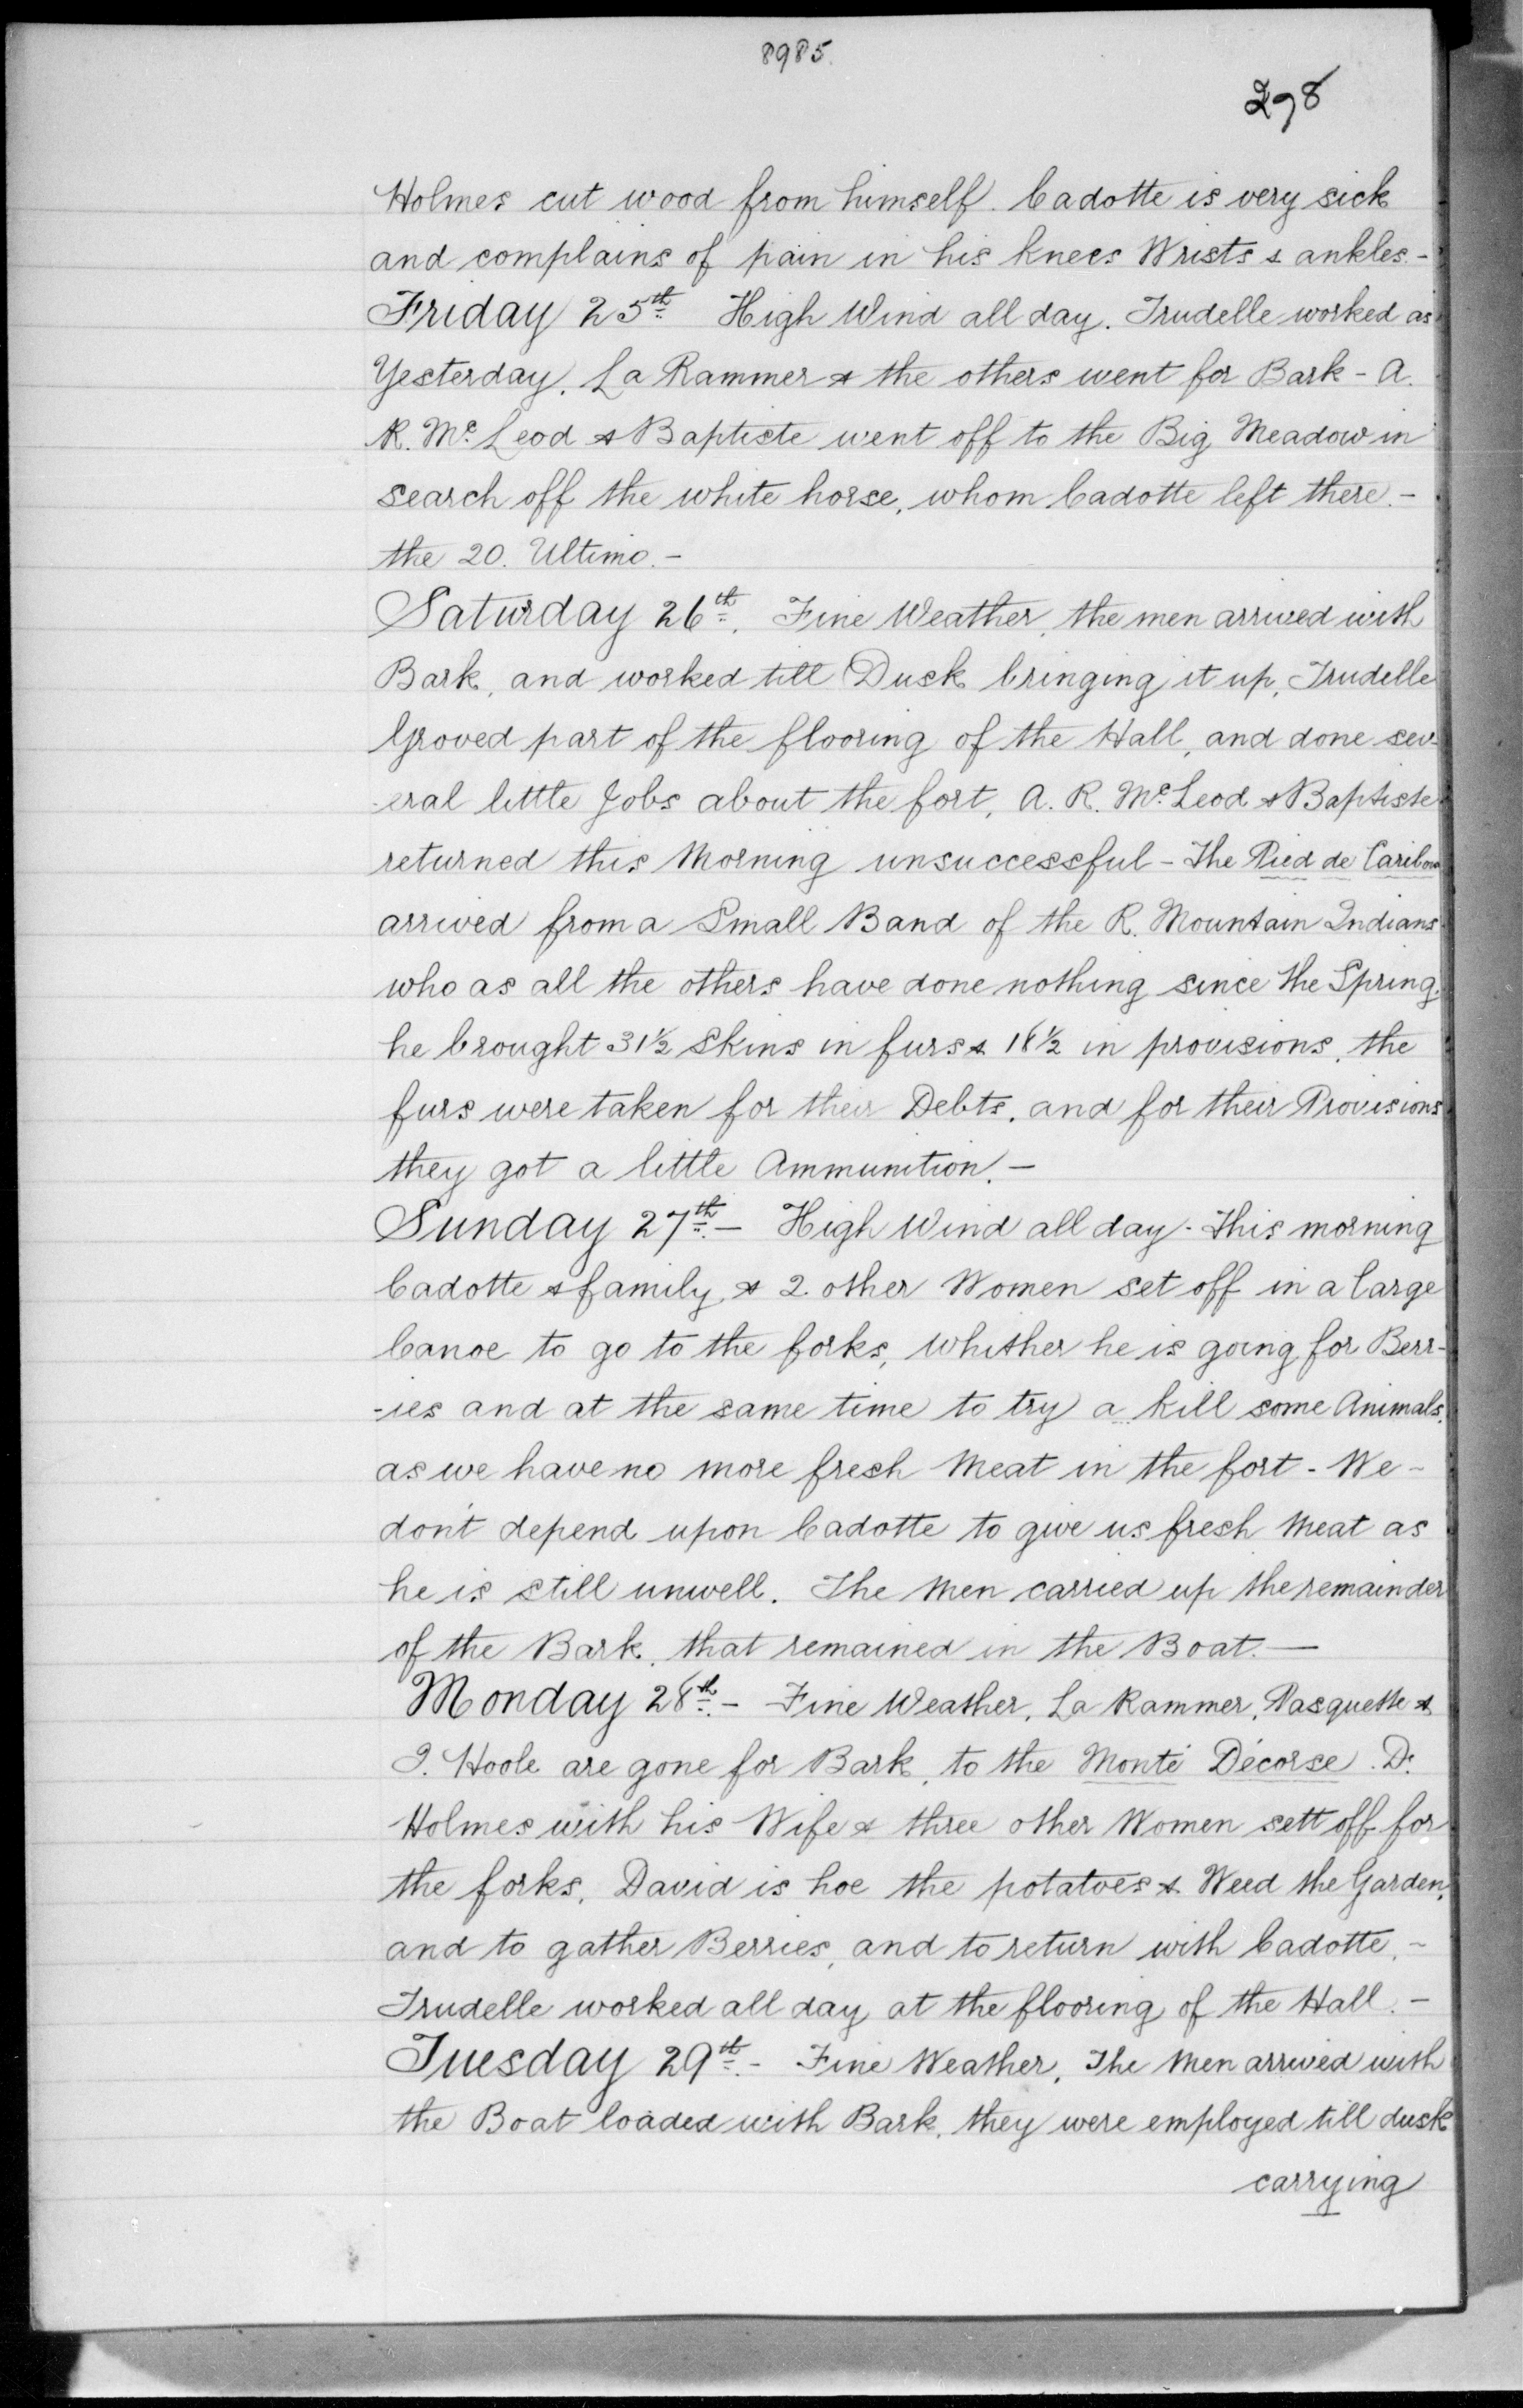 8985.
298
Holmes cut wood from himself. Cadotte is very sick
and complains of pain in his knees Wrists & ankles.-
Friday 25th High Wind all day. Trudelle worked as
Yesterday. La Rammer & the others went for Bark - A.
R. Mc Leod & Baptiste went off to the Big Meadow in
search off the white horse, whom Cadotte left there.-
the 20. Ultimo.-
Saturday 26th. Fine Weather, the men arrived with
Bark, and worked till Dusk bringing it up, Trudelle
Groved part of the flooring of the Hall, and done sev-
-eral little Jobs about the fort, A. R. Mc Leod & Baptiste
returned this Morning unsuccessful - The Pied de Caribou
arrived from a Small Band of the R. Mountain Indians
who as all the others have done nothing since the Spring.
he brought 31½ Skins in furs & 18½ in provisions, the
furs were taken for their Debts, and for their Provisions
they got a little Ammunition.-
Sunday 27th.- High Wind all day. This morning
Cadotte & family, & 2 other Women set off in a large
Canoe to go to the forks, whither he is going for Berr-
-ies and at the same time to try a kill some Animals,
as we have no more fresh Meat in the fort - We -
don't depend upon Cadotte to give us fresh Meat as
he is still unwell. The Men carried up the remainder
of the Bark, that remained in the Boat.-
Monday 28th.- Fine Weather, La Rammer, Pasquette &
I. Hoole are gone for Bark, to the Monté Décorse. D.
Holmes with his Wife & three other Women sett off for
the forks, David is hoe the potatoes & Weed the Garden,
and to gather Berries, and to return with Cadotte.-
Trudelle worked all day at the flooring of the Hall.-
Tuesday 29th.- Fine Weather, The Men arrived with
the Boat loaded with Bark, they were employed till dusk
carrying